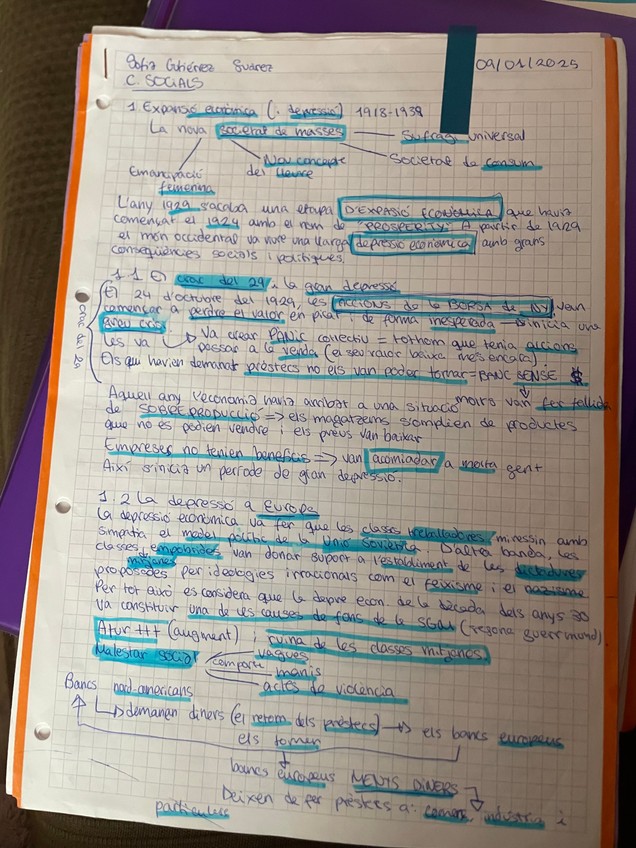 Sofia Gutiérrez Suárez
09/01/2025
C. SOCIALS
1 Expansió econòmica (i depressió) 1918-1939
La nova societat de masses
Sufragi universal
Nou concepte del lleure
Societat de consum
Emancipació femenina
L'any 1929 s'acaba una etapa D'EXPASIÓ ECONÒMICA que havia
començat el 1924 amb el nom de PROSPERITY. A partir de 1929
el món occidental va viure una llarga depressió econòmica amb grans
conseqüències socials i polítiques.
1.1 El crac del 29 i la gran depressió
crac del 29
El 24 d'octubre del 1929, les accions de la BORSA de NY van
començar a perdre el valor en picat i de forma inesperada → s'inicia una
greu crisi
Es va → Va crear PÀNIC col·lectiu = tothom que tenia accions
passar a la venda (el seu valor baixa més encara).
Els qui havien demanat préstecs no els van poder tornar = BANC SENSE $
↓
molts van fer fallida
Aquell any l'economia havia arribat a una situació
de SOBREPRODUCCIÓ ⇒ els magatzems s'omplien de productes
que no es podien vendre i els preus van baixar
Empreses no tenien beneficis ⇒ van acomiadar a molta gent
Així s'inicia un període de gran depressió.
1.2 La depressió a Europa
La depressió econòmica va fer que les classes treballadores miressin amb
simpatia el model polític de la Unió Soviètica. D'altra banda, les
classes mitjanes empobrides van donar suport a l'establiment de les dictadures
proposades per ideologies irracionals com el feixisme i el nazisme
Per tot això es considera que la depre econ. de la dècada dels anys 30
va constituir una de les causes de fons de la SGM (segona guerr mund)
Atur +++ (augment) i ruïna de les classes mitjanes.
Malestar social
comporta
vagues
manis
actes de violència
Bancs nord-americans
↳ demanen diners (el retorn dels préstecs) → els bancs europeus
els tornen
bancs europeus MENYS DINERS
Deixen de fer préstecs a: comerç, indústria i
particulars